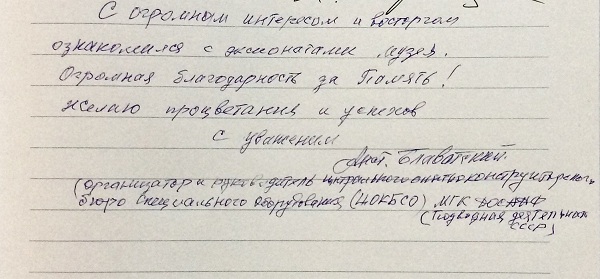 С огромным интересом и восторгом
ознакомился с экспонатами музея.
Огромная благодарность за Память!
Желаю процветания и успехов
с уважением
Анат. Блаватский.
(организатор и руководитель центрального опытно конструкторского
бюро специального оборудования (ЦОКБСО) МГК ДОСААФ
(Подводная деятельность
СССР)